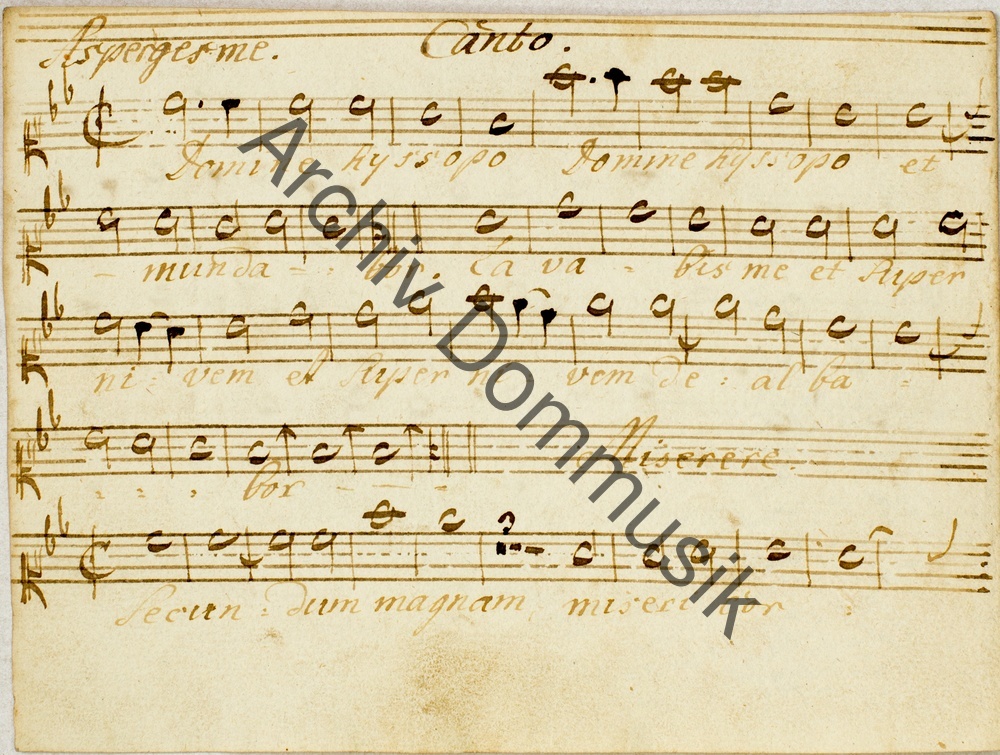 Asperges me. Canto.
Domine hyssopo Domine hyssopo et
munda - - bor. La va - bis me et super
ni - vem et super ni vem de - al ba -
Miserere.
- - - bor - - -
Secun - dum magnam miseri cor -
Archiv Dommusik